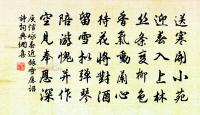 送寒開小苑
迎春入上林
絲條變柳色
香氣動蘭心
待花將對酒
留雪擬彈琴
陪遊愧并作
空見奉恩深
庾信詠春近餘雪應詔
詩詞典網集